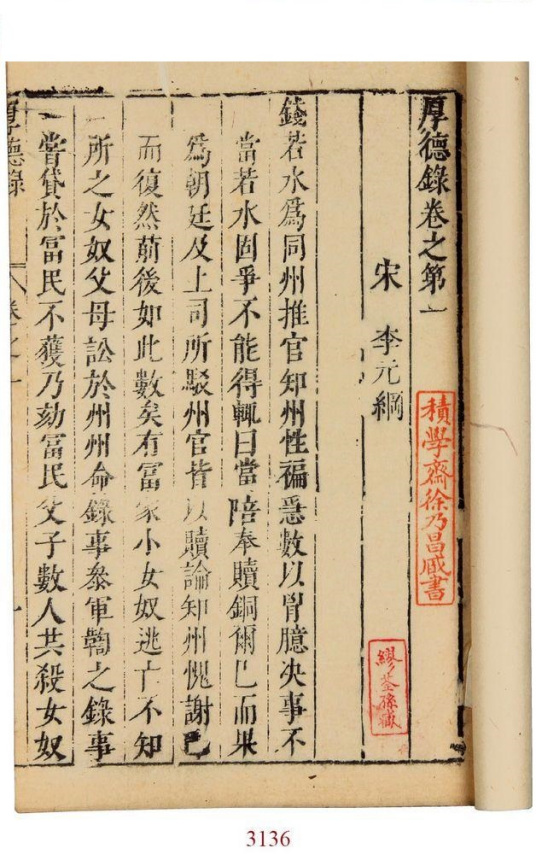 厚德錄卷之第一
宋　李元綱
積學齋徐乃昌臧書
繆荃孫藏
錢若水爲同州推官知州性褊急數以胷臆决事不
當若水固爭不能得輒曰當陪奉贖銅爾已而果
爲朝廷及上司所駁州官皆以贖論知州愧謝已
而復然前後如此數矣有富家小女奴逃亡不知
所之女奴父母訟於州州命錄事叅軍鞫之錄事
嘗貸於富民不獲乃劾富民父子數人共殺女奴
厚德錄　卷之一
3136